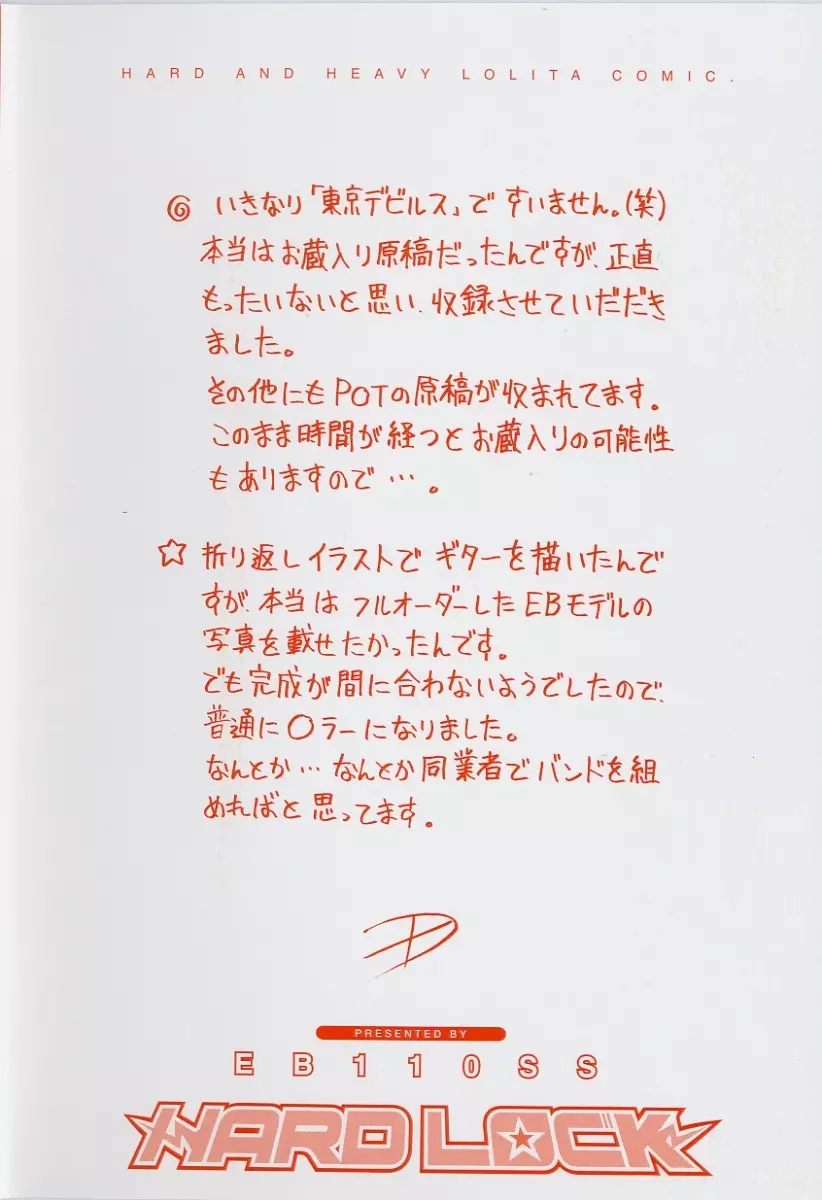 HARD AND HEAVY LOLITA COMIC.
◎ いきなり「東京デビルス」で すいません。(笑)
本当はお蔵入り原稿だったんですが、正直
もったいないと思い、収録させていだだき
ました。
その他にもPOTの原稿が収まれてます。
このまま時間が経つとお蔵入りの可能性
もありますので…。
☆ 折り返しイラストで ギターを描いたんで
すが、本当は フルオーダーした EBモデルの
写真を載せたかったんです。
でも完成が間に合わないようでしたので、
普通に〇ラーになりました。
なんとか…なんとか同業者でバンドを組
めればと思ってます。
PRESENTED BY
EB110SS
HARD LOCK